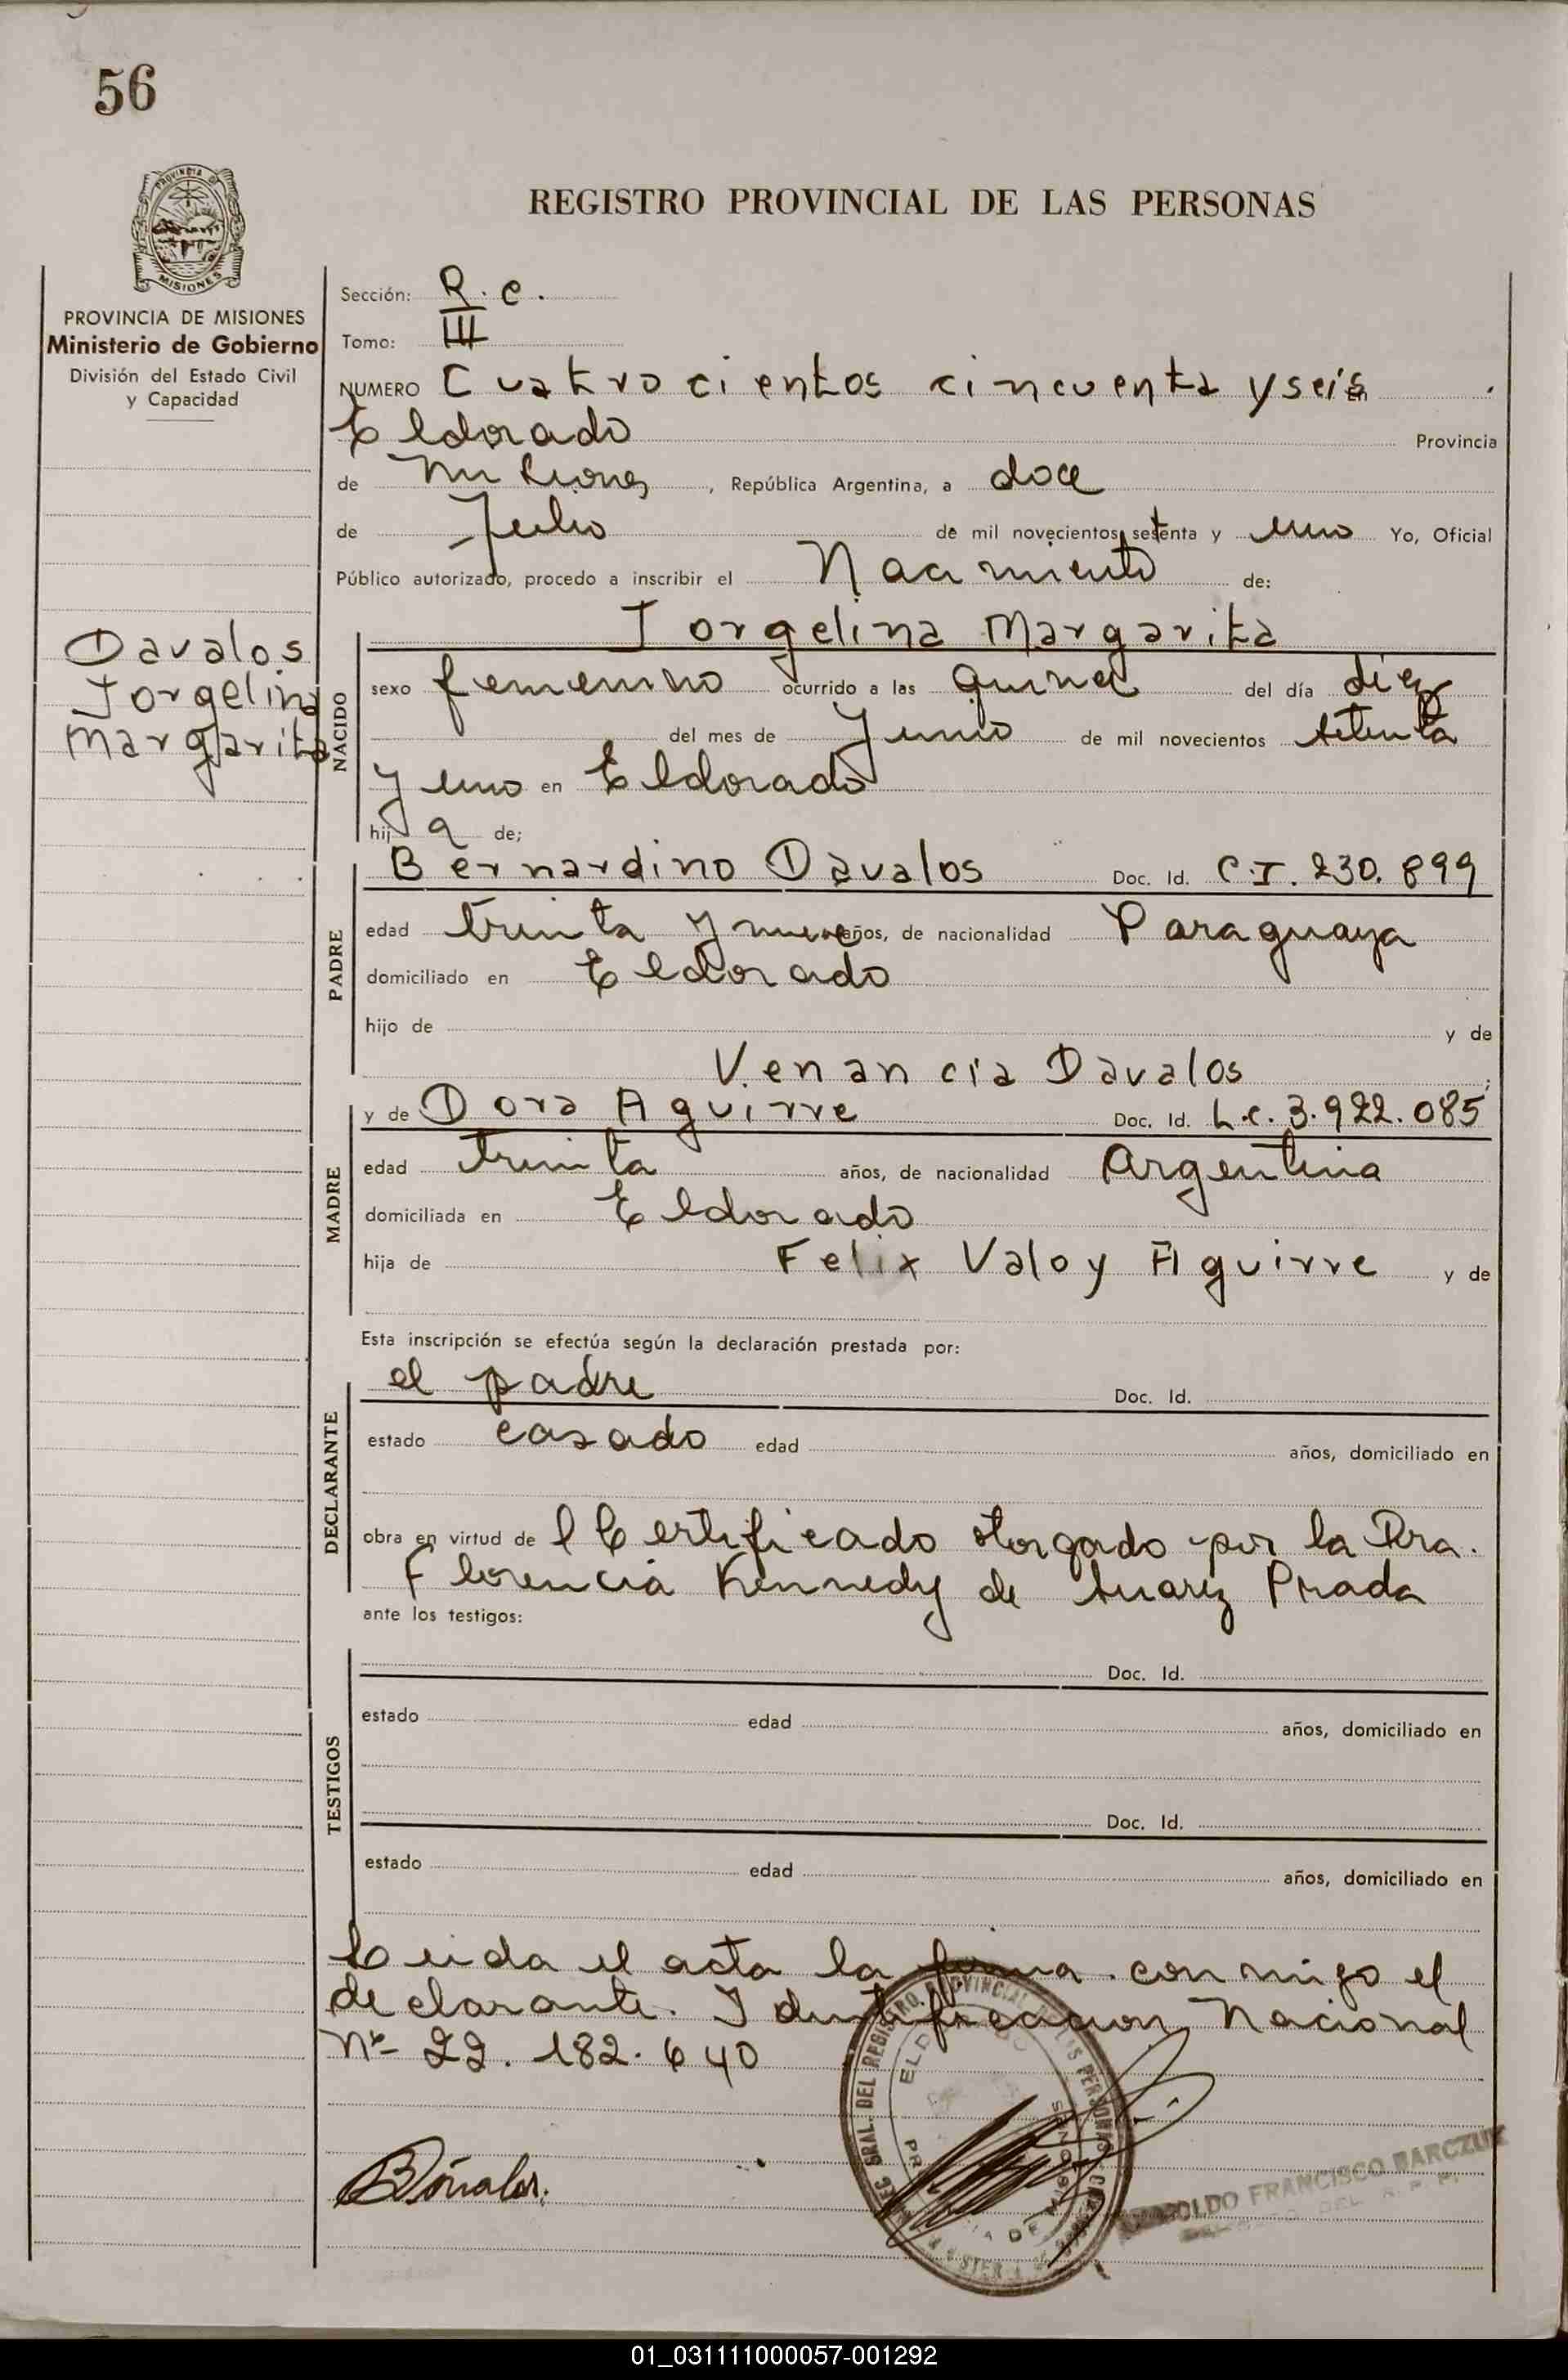 56
PROVINCIA DE
MISIONES
REGISTRO PROVINCIAL DE LAS PERSONAS
PROVINCIA DE MISIONES
Ministerio de Gobierno
División del Estado Civil
y Capacidad
Davalos
Jorgelina
Margarita
Sección: R.C.
Tomo: III
NUMERO Cuatrocientos cincuenta y seis
Eldorado Provincia
de Misiones, República Argentina, a doce
de Julio de mil novecientos setenta y uno Yo, Oficial
Público autorizado, procedo a inscribir el Nacimiento de:
NACIDO
Jorgelina Margarita
sexo femenino ocurrido a las quince del día diez
del mes de Junio de mil novecientos setenta
y uno en Eldorado
hija de;
PADRE
Bernardino Davalos Doc. Id. C.I. 230.899
edad treinta y nueve años, de nacionalidad Paraguaya
domiciliado en Eldorado
hijo de y de
Venancia Davalos;
MADRE
y de Dora Aguirre Doc. Id. L.C. 3.922.085
edad treinta años, de nacionalidad Argentina
domiciliada en Eldorado
hija de Felix Valoy Aguirre y de
Esta inscripción se efectúa según la declaración prestada por:
DECLARANTE
el padre Doc. Id.
estado casado edad años, domiciliado en
obra en virtud de l Certificado otorgado por la Dra.
Florencia Kennedy de Suarez Prada
ante los testigos:
TESTIGOS
Doc. Id.
estado edad años, domiciliado en
Doc. Id.
estado edad años, domiciliado en
Leida el acta la firma conmigo el
declarante. Identificacion Nacional
Nº 22.182.640
BDávalos.
GRAL. DEL REGISTRO PROVINCIAL DE LAS PERSONAS
FRANCISCO BARCZUK
01_031111000057-001292